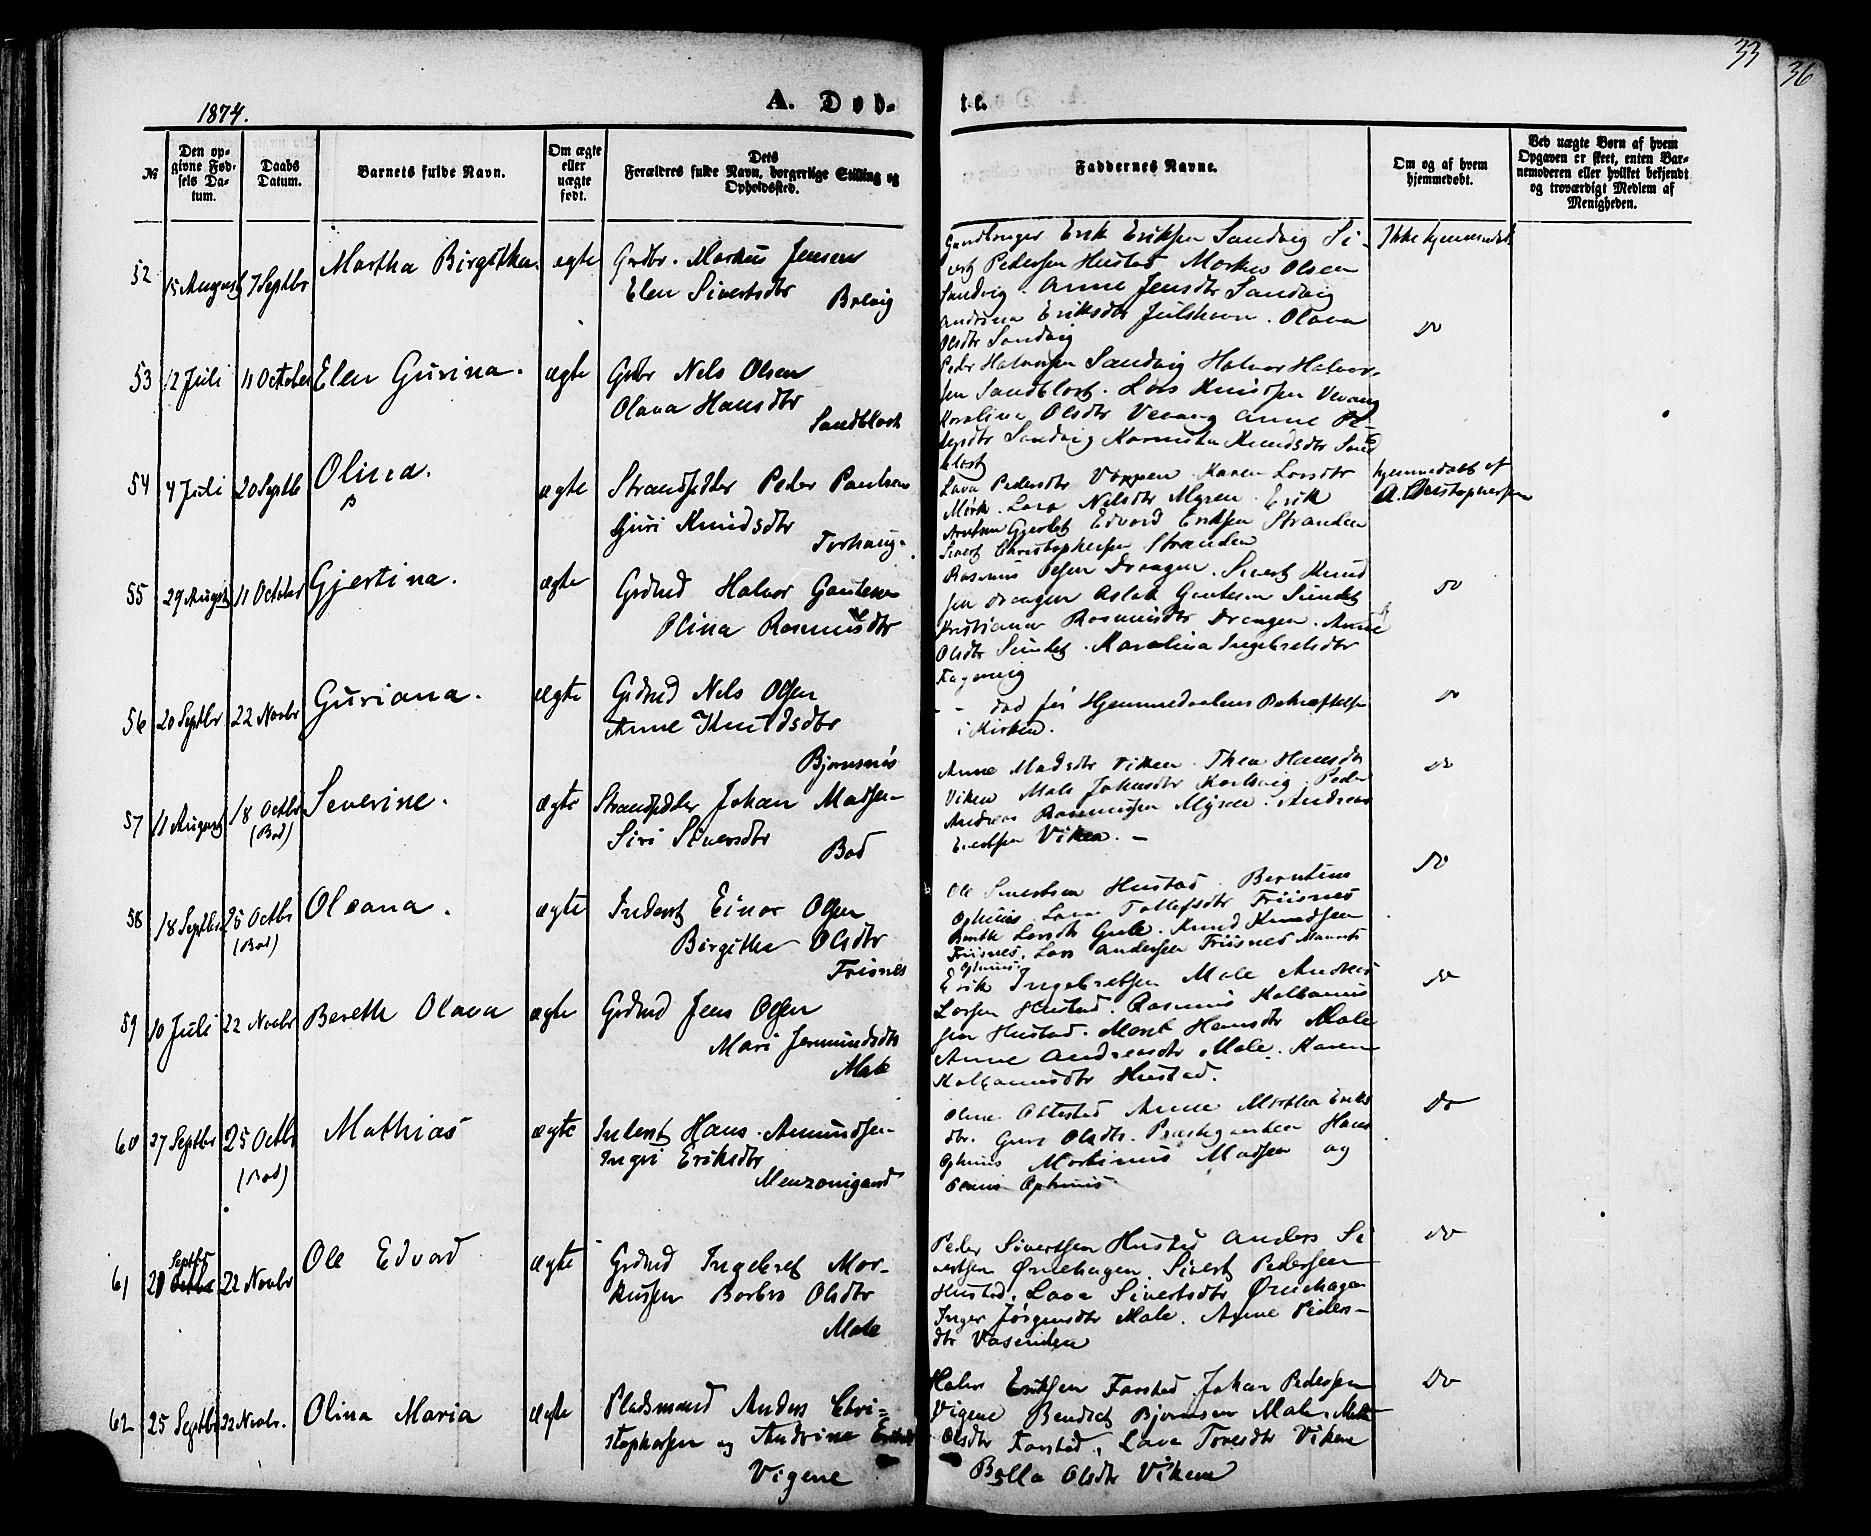 33
36
1874.
A. Døb-
te.
№
Den op-
givne Fød-
sels Da-
tum.
Daabs
Datum.
Barnets fulde Navn.
Om ægte
eller
uægte
født.
Dets
Forældres fulde Navn, borgerlige Stilling og
Opholdssted.
Faddernes Navne.
Om og af hvem
hjemmedøbt.
Ved uægte Børn af hvem
Opgaven er skeet, enten Bar-
nemoderen eller hvilket bekjendt
og troværdigt Medlem af
Menigheden.
52
15 August
7 Septbr
Martha Birgitha.
ægte
Grdbr. Markus Jensen
Elen Sivertsdtr
Brevig
Gaardbruger Erik Eriksen Sandvig Si-
vert Pedersen Hustad Markus Olsen
Sandvig. Anne Jensdtr Sandvig
Andrina Eriksdtr Julshavn. Olava
Olsdtr Sandvig
Ikke hjemmedøbt
do
53
12 Juli
11 October
Elen Gurina.
ægte
Grbr Nels Olsen
Olava Hansdtr
Sandblost
Peder Halvorsen Sandvig Halvor Halvor-
sen Sandblost. Lars Knudsen Vevang
Karolina Olsdtr Vevang Anne Pe-
dersdtr Sandvig Knudsdtr Sand
blost
54
4 Juli
20 Septb
Olina.
ægte
Strandsidder Peder Paulsen
Guri Knudsdtr
Torhaug.
Lava Pedersdtr Karen Larsdtr
Mörk. Lava Nelsdtr Myren. Erik
Edvard Eriksen Stranden
Sivert Christophersen Stranden
hjemmedøbt af
A. Christophersen
55
29 August
11 October
Gjertina.
ægte
Grdmd Halvor Gautesen
Olina Rasmusdtr
Rasmus Olsen Drangen. Sivert Knud
sen Drangen Aslak Gautesen Sundet
Kristiane Rasmusdtr Drangen. Anne
Olsdtr Sundet. Karolina Ingebretsdtr
do
56
20 Septbr
22 Novbr
Guriana.
ægte
Grdmd Nels Olsen
Anne Knudsdtr
Bjørnsnös
- - død før Hjemmedaabens Bekræftelse
i Kirken.
do
57
11 August
18 Octbr
(Bod)
Severine.
ægte
Strandsidder Johan Madsen
Siri Siversdtr
Bod
Anne Madsdtr Viken. Thea Hansdtr
Viken Male Johansdtr Peder
Andreas Rasmussen Myren. Andreas
Viken. -
do
58
18 Septbr
25 Octbr
(Bod)
Oleana.
ægte
Inderst Einar Olsen
Birgitha Olsdtr
Friisnes
Ole Sivertsen Hustad.
Lava Tollefsdtr Friisnes
Larsdtr Gule. Knud Knudsen
Friisnes. Lars Andersen Friisnes
do
59
10 Juli
22 Novbr
Bereth Olava
ægte
Grdmd Jens Olsen
Mari Jermundsdtr
Male
Erik Ingebretsen Male Andreas
Larsen Hustad. Rasmus
sen Hustad. Marit Hansdtr Male
Anne Andreasdtr Male. Karen
Hustad.
do
60
27 Septbr
25 Octbr
(Bod)
Mathias
ægte
Inderst Hans Amundsen
Ingri Eriksdtr
Anne Martha Eriks
dtr. Guri Olsdtr. Hans
Martinus Madsen og
do
61
21 Septbr
22 Novbr
Ole Edvard
ægte
Grdmd Ingebret Mar-
kussen Barbro Olsdtr
Male
Peder Sivertsen Hustad Anders Si
vertsen Ørnehagen. Sivert Pedersen
Hustad. Lava Sivertsdtr Ørnehagen
Inger Jørgensdtr Male. Anne Peders-
dtr Vasenden
do
62
25 Septbr
22 Novbr.
Olina Maria
ægte
Pladsmand Anders Chri-
stophersen og Andrine Eriksdtr
Vigene
Halvor Eriksen Farstad Johan Pedersen
Vigene Bendict Bjørnsen Male.
Olsdtr Farstad, Lava Toresdtr Viken
Olsdtr Viken
do